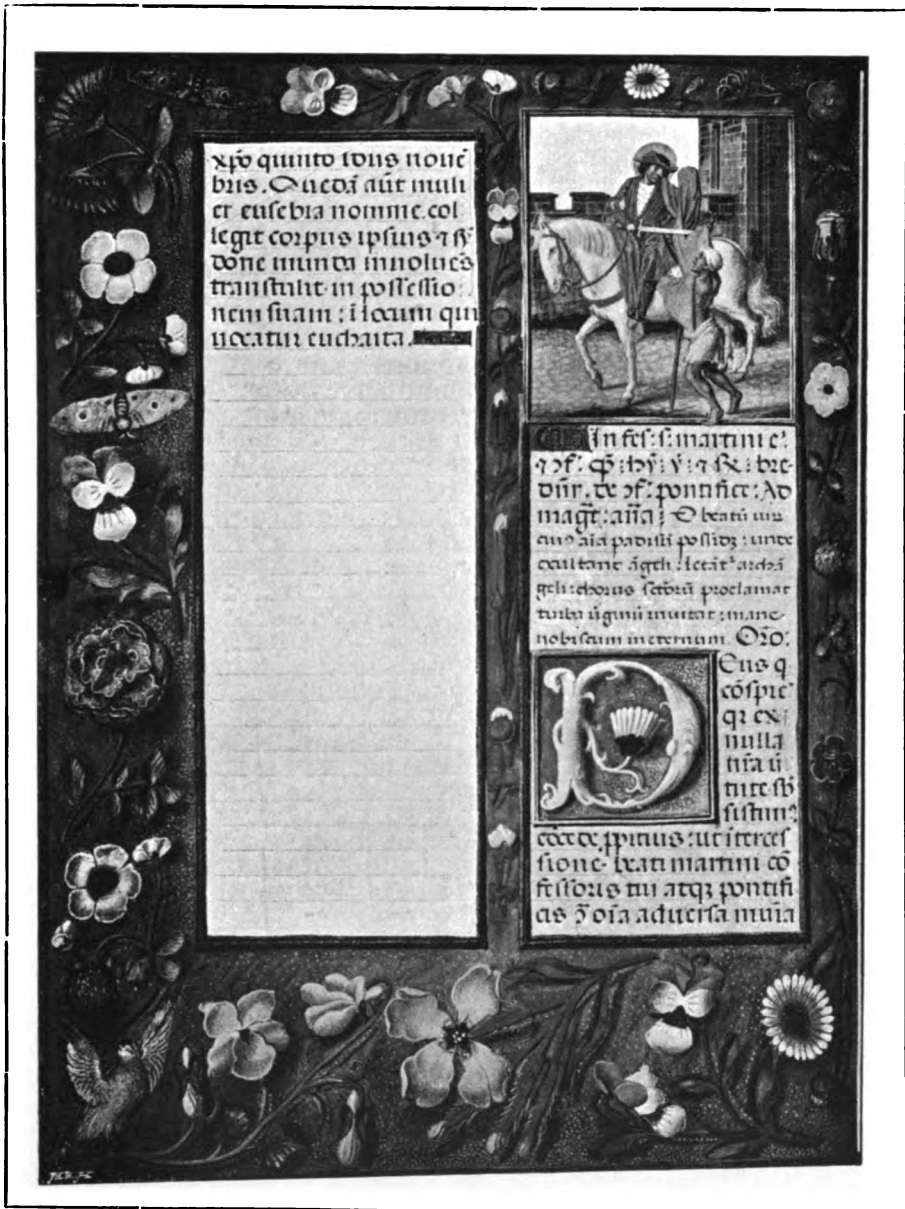 xp̄o quinto idus nouē
bris. Quedā aūt muli
er eusebia nomine. col
legit corpus ipsius ⁊ sȳ
done munda inuoluēs
transtulit in possessio
nem suam: ī locum qui
uocatur euchaita.
In fes: s. martini e.
⁊ ɔf: cp̄: hȳ: v̄: ⁊ ℟: bre-
ɔf: pontifice: Ad
magt̄: añā: O beatū uirū
cuiꝰ aīa padisū possidꝫ: unde
exultant āgeli: letāt᷑ archā
geli: chorus sctōrū proclamat
turba ūginū inuitat: mane
nobiscum in eternum Orō:
Eus q
cōspic᷑
qꝛ ex
nulla
nr̄a ū
tute sb̄
sistim᷒
ꝓpitius: ut īterces
sione beati martini cō
fessoris tui atqꝫ pontifi
cis ꝯ oīa aduersa munia